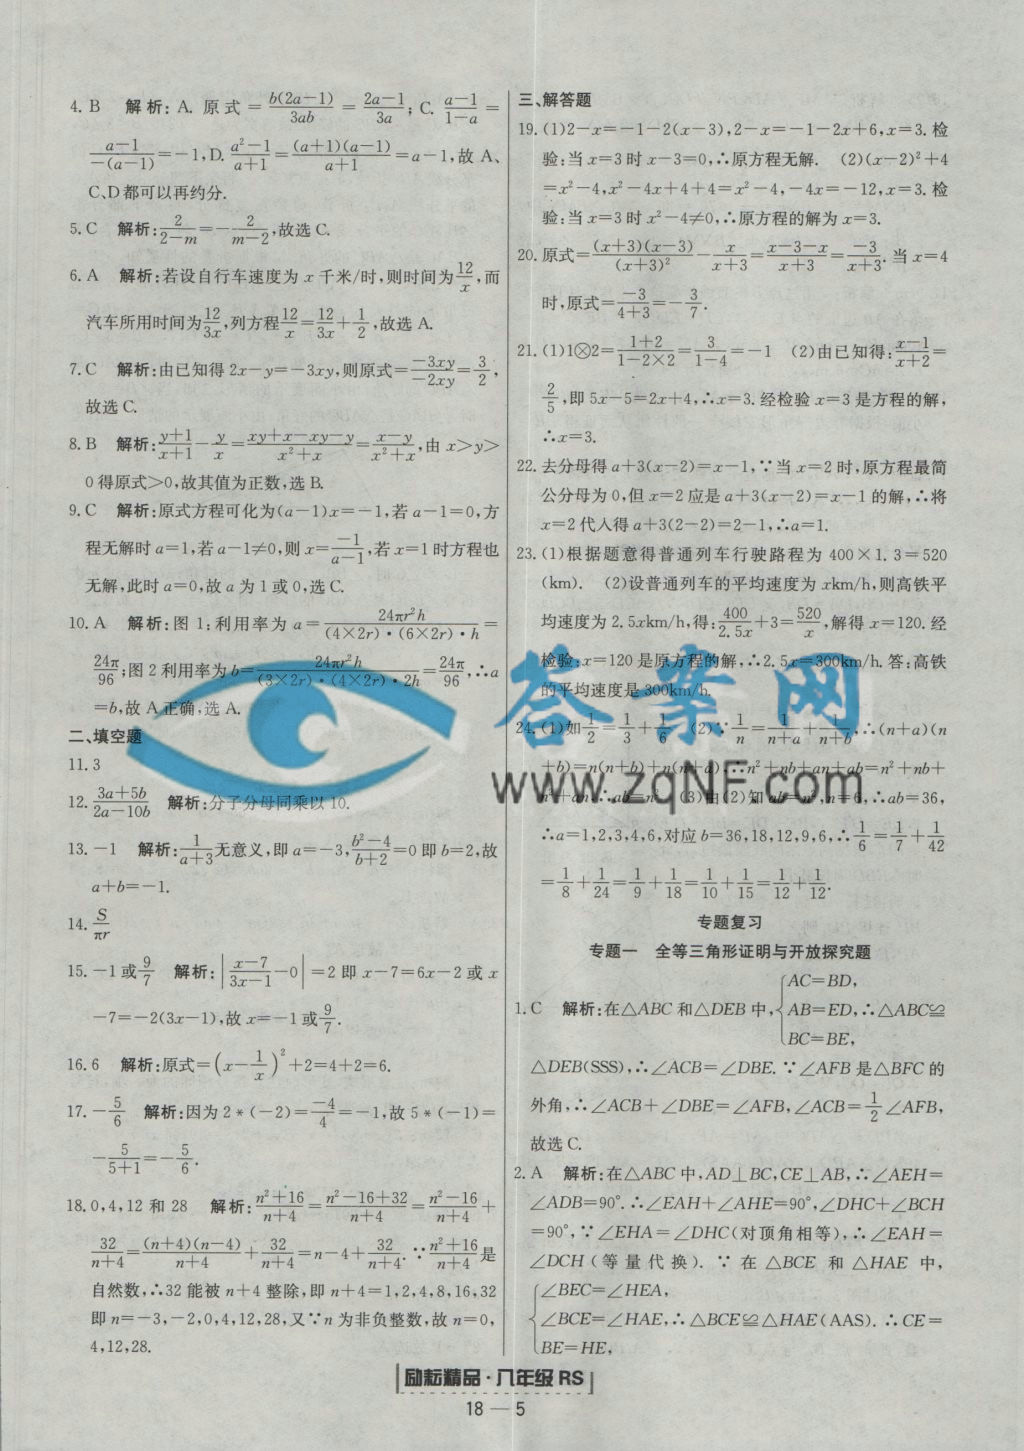 4. B 解析: A. 原式 = b(2a-1)/3ab = 2a-1/3a; C. a-1/1-a =
a-1/-(a-1) = -1, D. a²-1/a+1 = (a+1)(a-1)/a+1 = a-1, 故 A、
C、D 都可以再约分.
5. C 解析: 2/2-m = - 2/m-2, 故选 C.
6. A 解析: 若设自行车速度为 x 千米/时, 则时间为 12/x, 而
汽车所用时间为 12/3x, 列方程 12/x = 12/3x + 1/2, 故选 A.
7. C 解析: 由已知得 2x-y=-3xy, 则原式= -3xy/-2xy = 3/2,
故选 C.
8. B 解析: y+1/x+1 - y/x = xy+x-xy-y/x²+x = x-y/x²+x, 由 x>y>
0 得原式>0, 故其值为正数, 选 B.
9. C 解析: 原式方程可化为(a-1)x=-1, 若 a-1=0, 方
程无解时 a=1, 若 a-1≠0, 则 x= -1/a-1, 若 x=1 时方程也
无解, 此时 a=0, 故 a 为 1 或 0, 选 C.
10. A 解析: 图 1: 利用率为 a= 24πr²h/(4×2r)·(6×2r)·h =
24π/96; 图 2 利用率为 b= 24πr²h/(3×2r)·(4×2r)·2h = 24π/96, ∴a
=b, 故 A 正确, 选 A.
二、填空题
11. 3
12. 3a+5b/2a-10b 解析: 分子分母同乘以 10.
13. -1 解析: 1/a+3 无意义, 即 a=-3, b²-4/b+2 =0 即 b=2, 故
a+b=-1.
14. S/πr
15. -1 或 9/7 解析: |x-7/3x-1 -0| =2 即 x-7=6x-2 或 x
-7=-2(3x-1), 故 x=-1 或 9/7.
16. 6 解析: 原式=(x-1/x)²+2=4+2=6.
17. -5/6 解析: 因为 2*(-2)= -4/4 =-1, 故 5*(-1)=
- 5/5+1 = -5/6.
18. 0, 4, 12 和 28 解析: n²+16/n+4 = n²-16+32/n+4 = n²-16/n+4 +
32/n+4 = (n+4)(n-4)/n+4 + 32/n+4 = n-4+ 32/n+4. ∵ n²+16/n+4 是
自然数, ∴32 能被 n+4 整除, 即 n+4=1, 2, 4, 8, 16, 32
即 n=-3, -2, 0, 4, 12, 28, 又∵n 为非负整数, 故 n=0,
4, 12, 28.
三、解答题
19. (1)2-x=-1-2(x-3), 2-x=-1-2x+6, x=3. 检
验: 当 x=3 时 x-3=0, ∴原方程无解. (2)(x-2)²+4
=x²-4, x²-4x+4+4=x²-4, -4x=-12, x=3. 检
验: 当 x=3 时 x²-4≠0, ∴原方程的解为 x=3.
20. 原式= (x+3)(x-3)/(x+3)² - x/x+3 = x-3-x/x+3 = -3/x+3. 当 x=4
时, 原式= -3/4+3 = -3/7.
21. (1)1⊗2= 1+2/1-2×2 = 3/1-4 =-1 (2)由已知得: x-1/x+2 =
2/5, 即 5x-5=2x+4, ∴x=3. 经检验 x=3 是方程的解,
∴x=3.
22. 去分母得 a+3(x-2)=x-1, ∵当 x=2 时, 原方程最简
公分母为 0, 但 x=2 应是 a+3(x-2)=x-1 的解, ∴将
x=2 代人得 a+3(2-2)=2-1, ∴a=1.
23. (1)根据题意得普通列车行驶路程为 400×1.3=520
(km). (2)设普通列车的平均速度为 xkm/h, 则高铁平
均速度为 2.5xkm/h, 得: 400/2.5x +3= 520/x, 解得 x=120. 经
检验: x=120 是原方程的解, ∴2.5x=300km/h. 答: 高铁
的平均速度是 300km/h.
24. (1)如 1/2 = 1/3 + 1/6 (2)∵ 1/n = 1/n+a + 1/n+b, ∴(n+a)(n
+b)=n(n+b)+n(n+a), ∴n²+nb+an+ab=n²+nb+
n²+an, ∴ab=n². (3)由(2)知 ab=n², n=6, ∴ab=36,
∴a=1, 2, 3, 4, 6, 对应 b=36, 18, 12, 9, 6, ∴ 1/6 = 1/7 + 1/42
= 1/8 + 1/24 = 1/9 + 1/18 = 1/10 + 1/15 = 1/12 + 1/12.
专题复习
专题一 全等三角形证明与开放探究题
AC=BD,
1. C 解析: 在△ABC 和△DEB 中, { AB=ED, ∴△ABC≌
BC=BE,
△DEB(SSS), ∴∠ACB=∠DBE. ∵∠AFB 是△BFC 的
外角, ∴∠ACB+∠DBE=∠AFB, ∠ACB= 1/2 ∠AFB,
故选 C.
2. A 解析: 在△ABC 中, AD⊥BC, CE⊥AB, ∴∠AEH=
∠ADB=90°. ∴∠EAH+∠AHE=90°, ∠DHC+∠BCH
=90°, ∵∠EHA=∠DHC(对顶角相等), ∴∠EAH=
∠DCH(等量代换). ∵在△BCE 和△HAE 中,
∠BEC=∠HEA,
{ ∠BCE=∠HAE, ∴△BCE≌△HAE(AAS). ∴CE=
BE=HE,
励耘精品·八年级 RS
18—5
答案网
www.zqNF.com